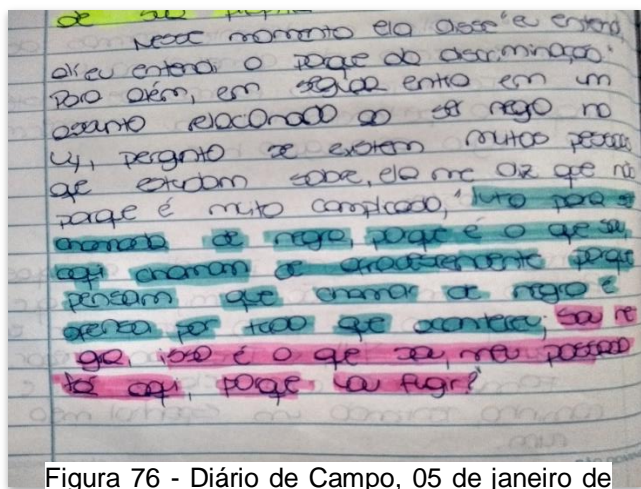 de sua própria
Nesse momento ela disse "eu entendi,
ali eu entendi o porque da discriminação".
Para além, em seguida entro em um
assunto relacionado ao ser negro no
Uy, pergunto se existem muitas pessoas
que estudam sobre, ela me diz que não
porque é muito complicado, "luto para se
chamada de negra, porque é o que sou,
aqui chamam de afrodescendente porque
pensam que chamar de negro é
ofensa por tudo que aconteceu, sou ne
gra, isso é o que sou, meu passado
tá aqui, porque vou fugir?"
Figura 76 - Diário de Campo, 05 de janeiro de